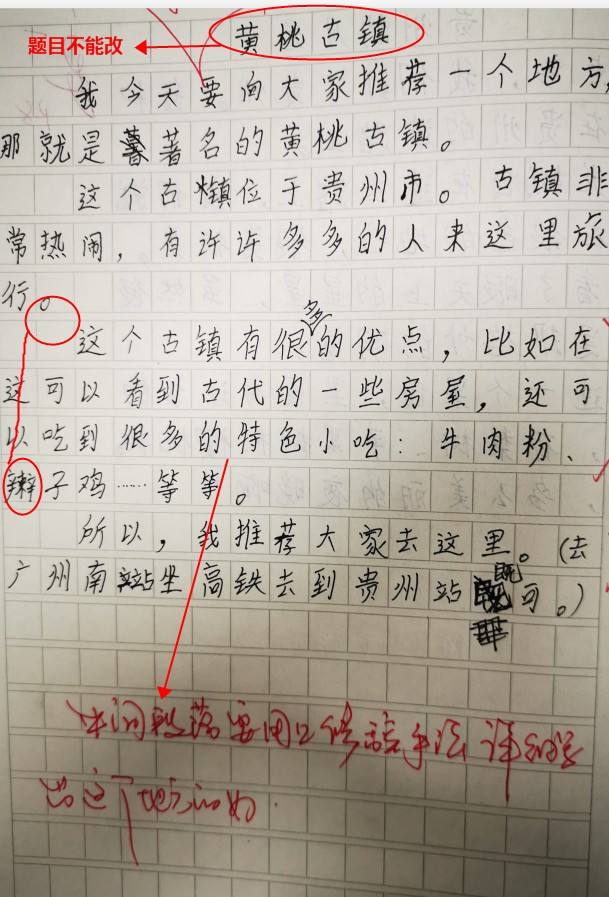 题目不能改
黄桃古镇
我今天要向大家推荐一个地方,
那就是著名的黄桃古镇。
这个古镇位于贵州市。古镇非
常热闹,有许许多多的人来这里旅
行。
这个古镇有很多的优点,比如在
这可以看到古代的一些房屋,还可
以吃到很多的特色小吃:牛肉粉、
辣子鸡……等等。
所以,我推荐大家去这里。(去
广州南站坐高铁去到贵州站既可。)
中间段落要用上修辞手法 详细写
出这个地方的好.